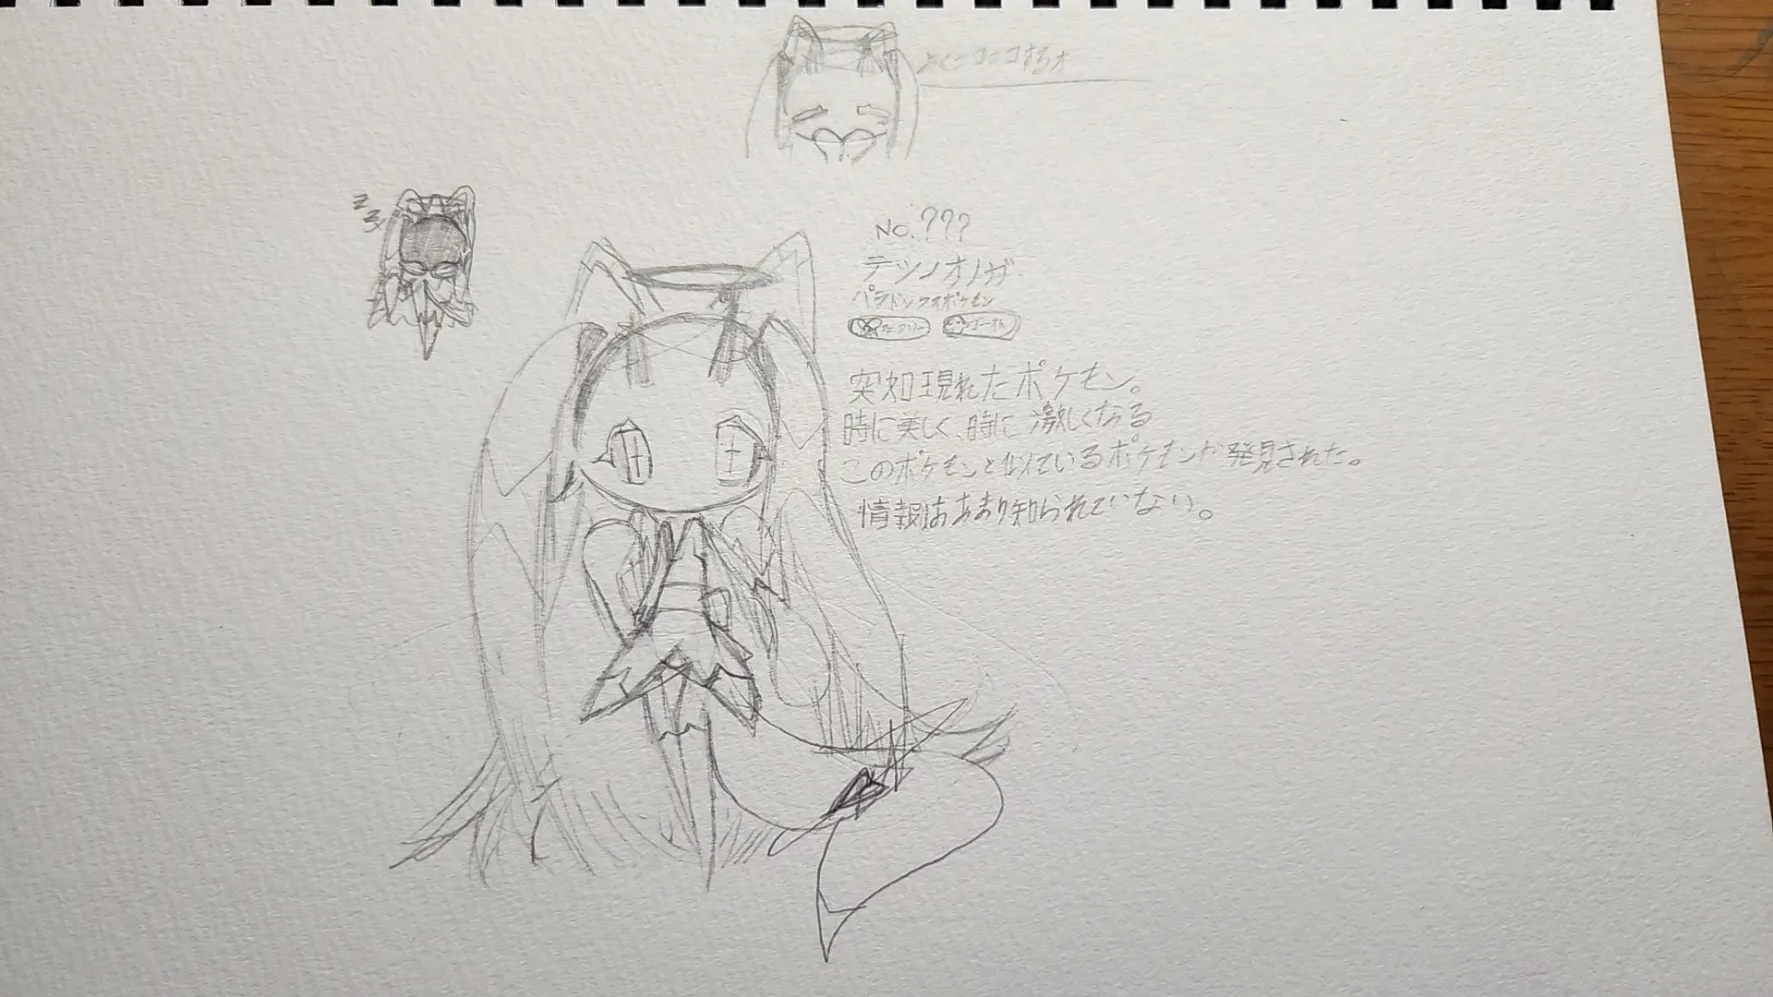 よくニコニコするオ
zz
No.???
テツノオノガ
パラドックスポケモン
突如現れたポケモン。
時に美しく、時に激しくなる
このポケモンと似ているポケモンが発見された。
情報はあまり知られていない。